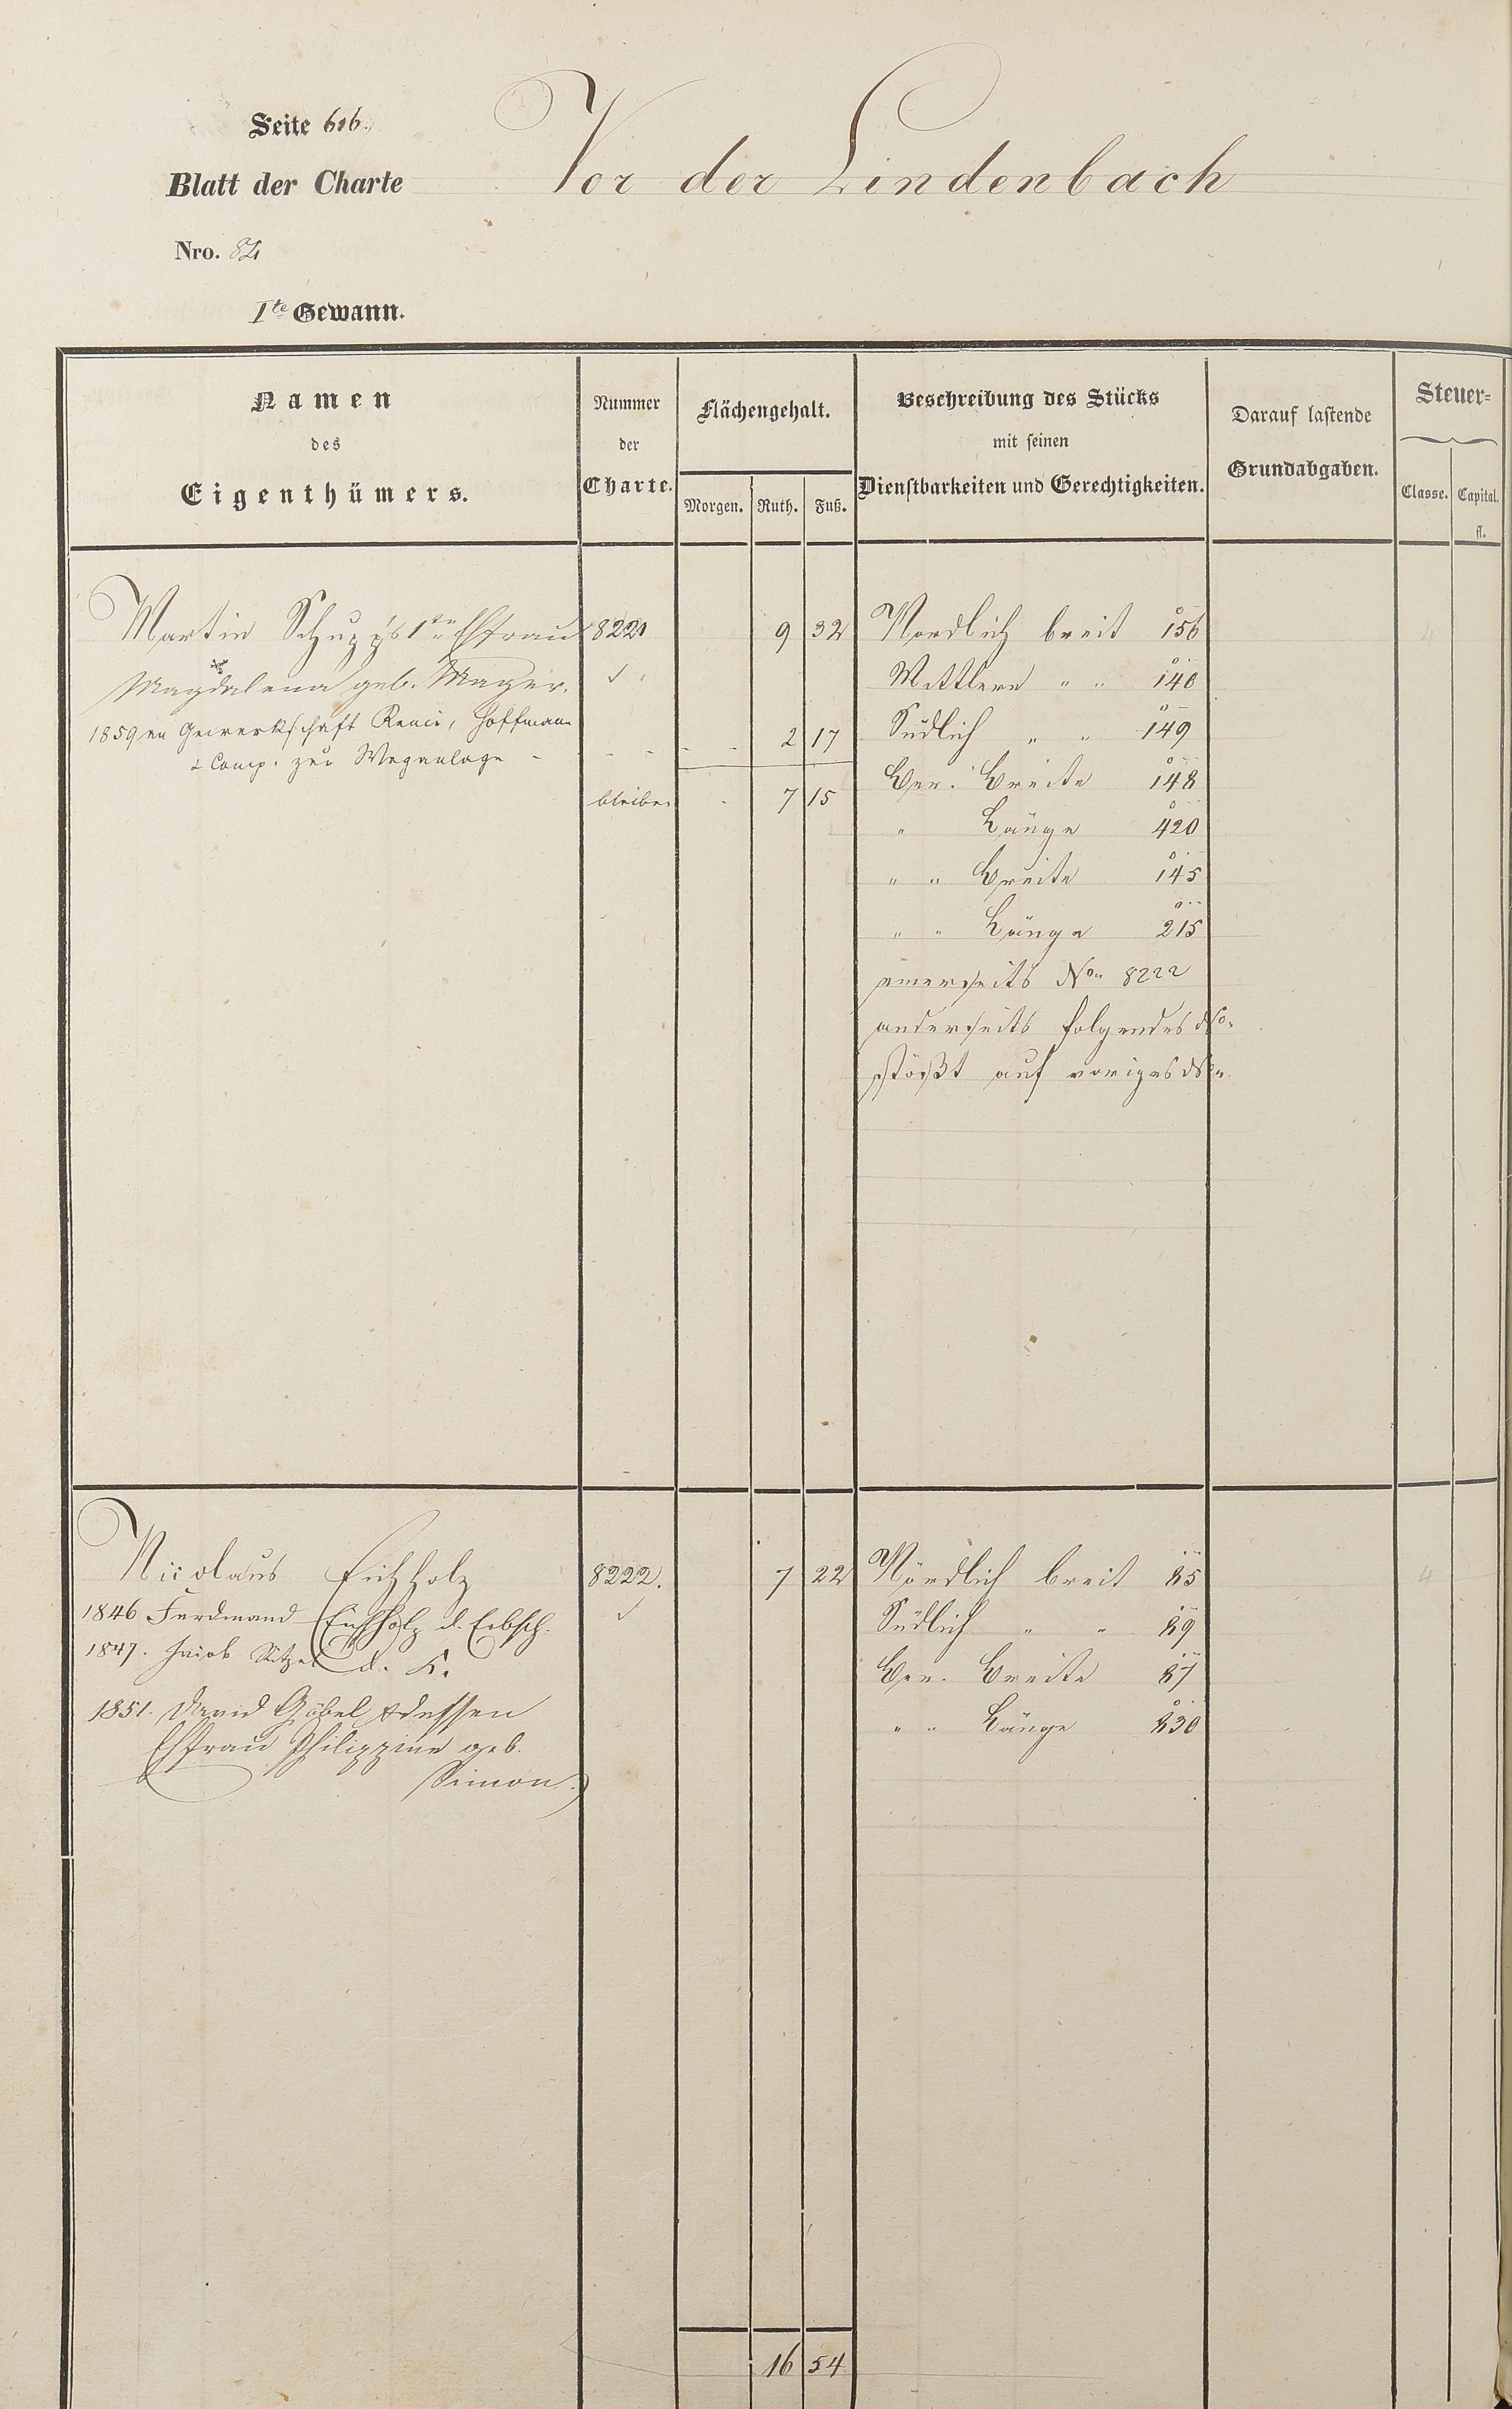 Seite 616.
Blatt der Charte
Vor der Lindenbach
Nro. 82
Ite Gewann.
Namen
des
Eigenthümers.
Nummer
der
Charte.
Flächengehalt.
Morgen. Ruth. Fuß.
Beschreibung des Stücks
mit seinen
Dienstbarkeiten und Gerechtigkeiten.
Darauf lastende
Grundabgaben.
Steuer=
Classe. Capital.
fl.
Martin Schupp's 1te Ehfrau 8221 9 32 Nordlich breit 156
Magdalena geb. Mager. Mittlere " " 140
1859 an Gewerkschaft Remi, Hoffmann 2 17 Südlich " " 149
& Comp. zur Weganlage - - - - - Ger. Breite 148
bleiben 7 15 " Länge 420
" " Breite 145
" " Länge 215
einerseits No. 8222
anderseits folgendes No.
stößt auf voriges No.
Nicolaus Eichholz 8222. 7 22 Nördlich breit 85 4
1846 Ferdinand Eichholz d. Erbsch. Südlich " " 89
1847. Jacob d. K. Ger. Breite 87
1851. David Göbel & dessen " " Länge 830
Ehfrau Philippine geb.
Simon.
16 54